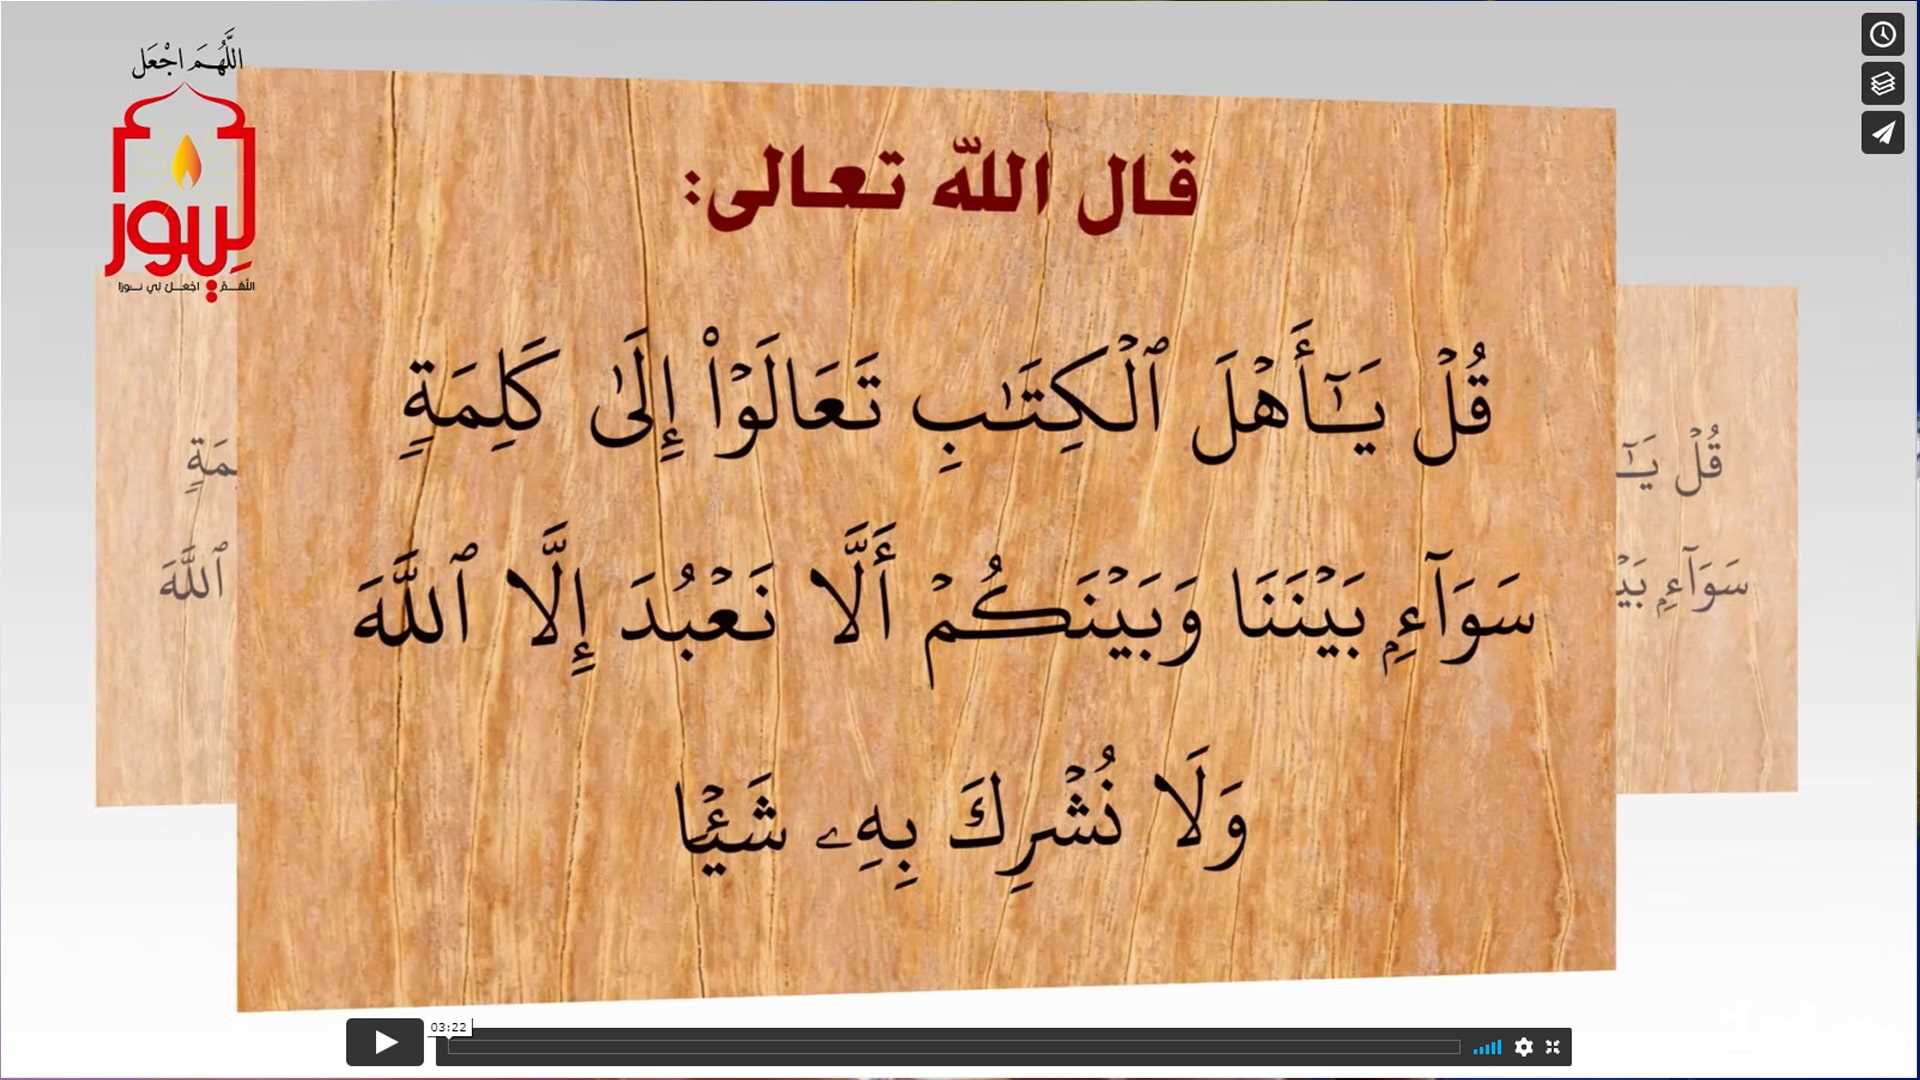 اللَّهُمَّ اجْعَل
لِي نُور
اللَّهُمَّ اجْعَل لِي نورا
قال الله تعالى:
قُلۡ يَـٰٓأَهۡلَ ٱلۡكِتَـٰبِ تَعَالَوۡا۟ إِلَىٰ كَلِمَةٍ
سَوَآءِۭ بَيۡنَنَا وَبَيۡنَكُمۡ أَلَّا نَعۡبُدَ إِلَّا ٱللَّهَ
وَلَا نُشۡرِكَ بِهِۦ شَيۡـًٔا
قُلۡ يَـٰٓ
مَةٍ
سَوَآءِۭ بَيۡ
ٱللَّهَ
03:22